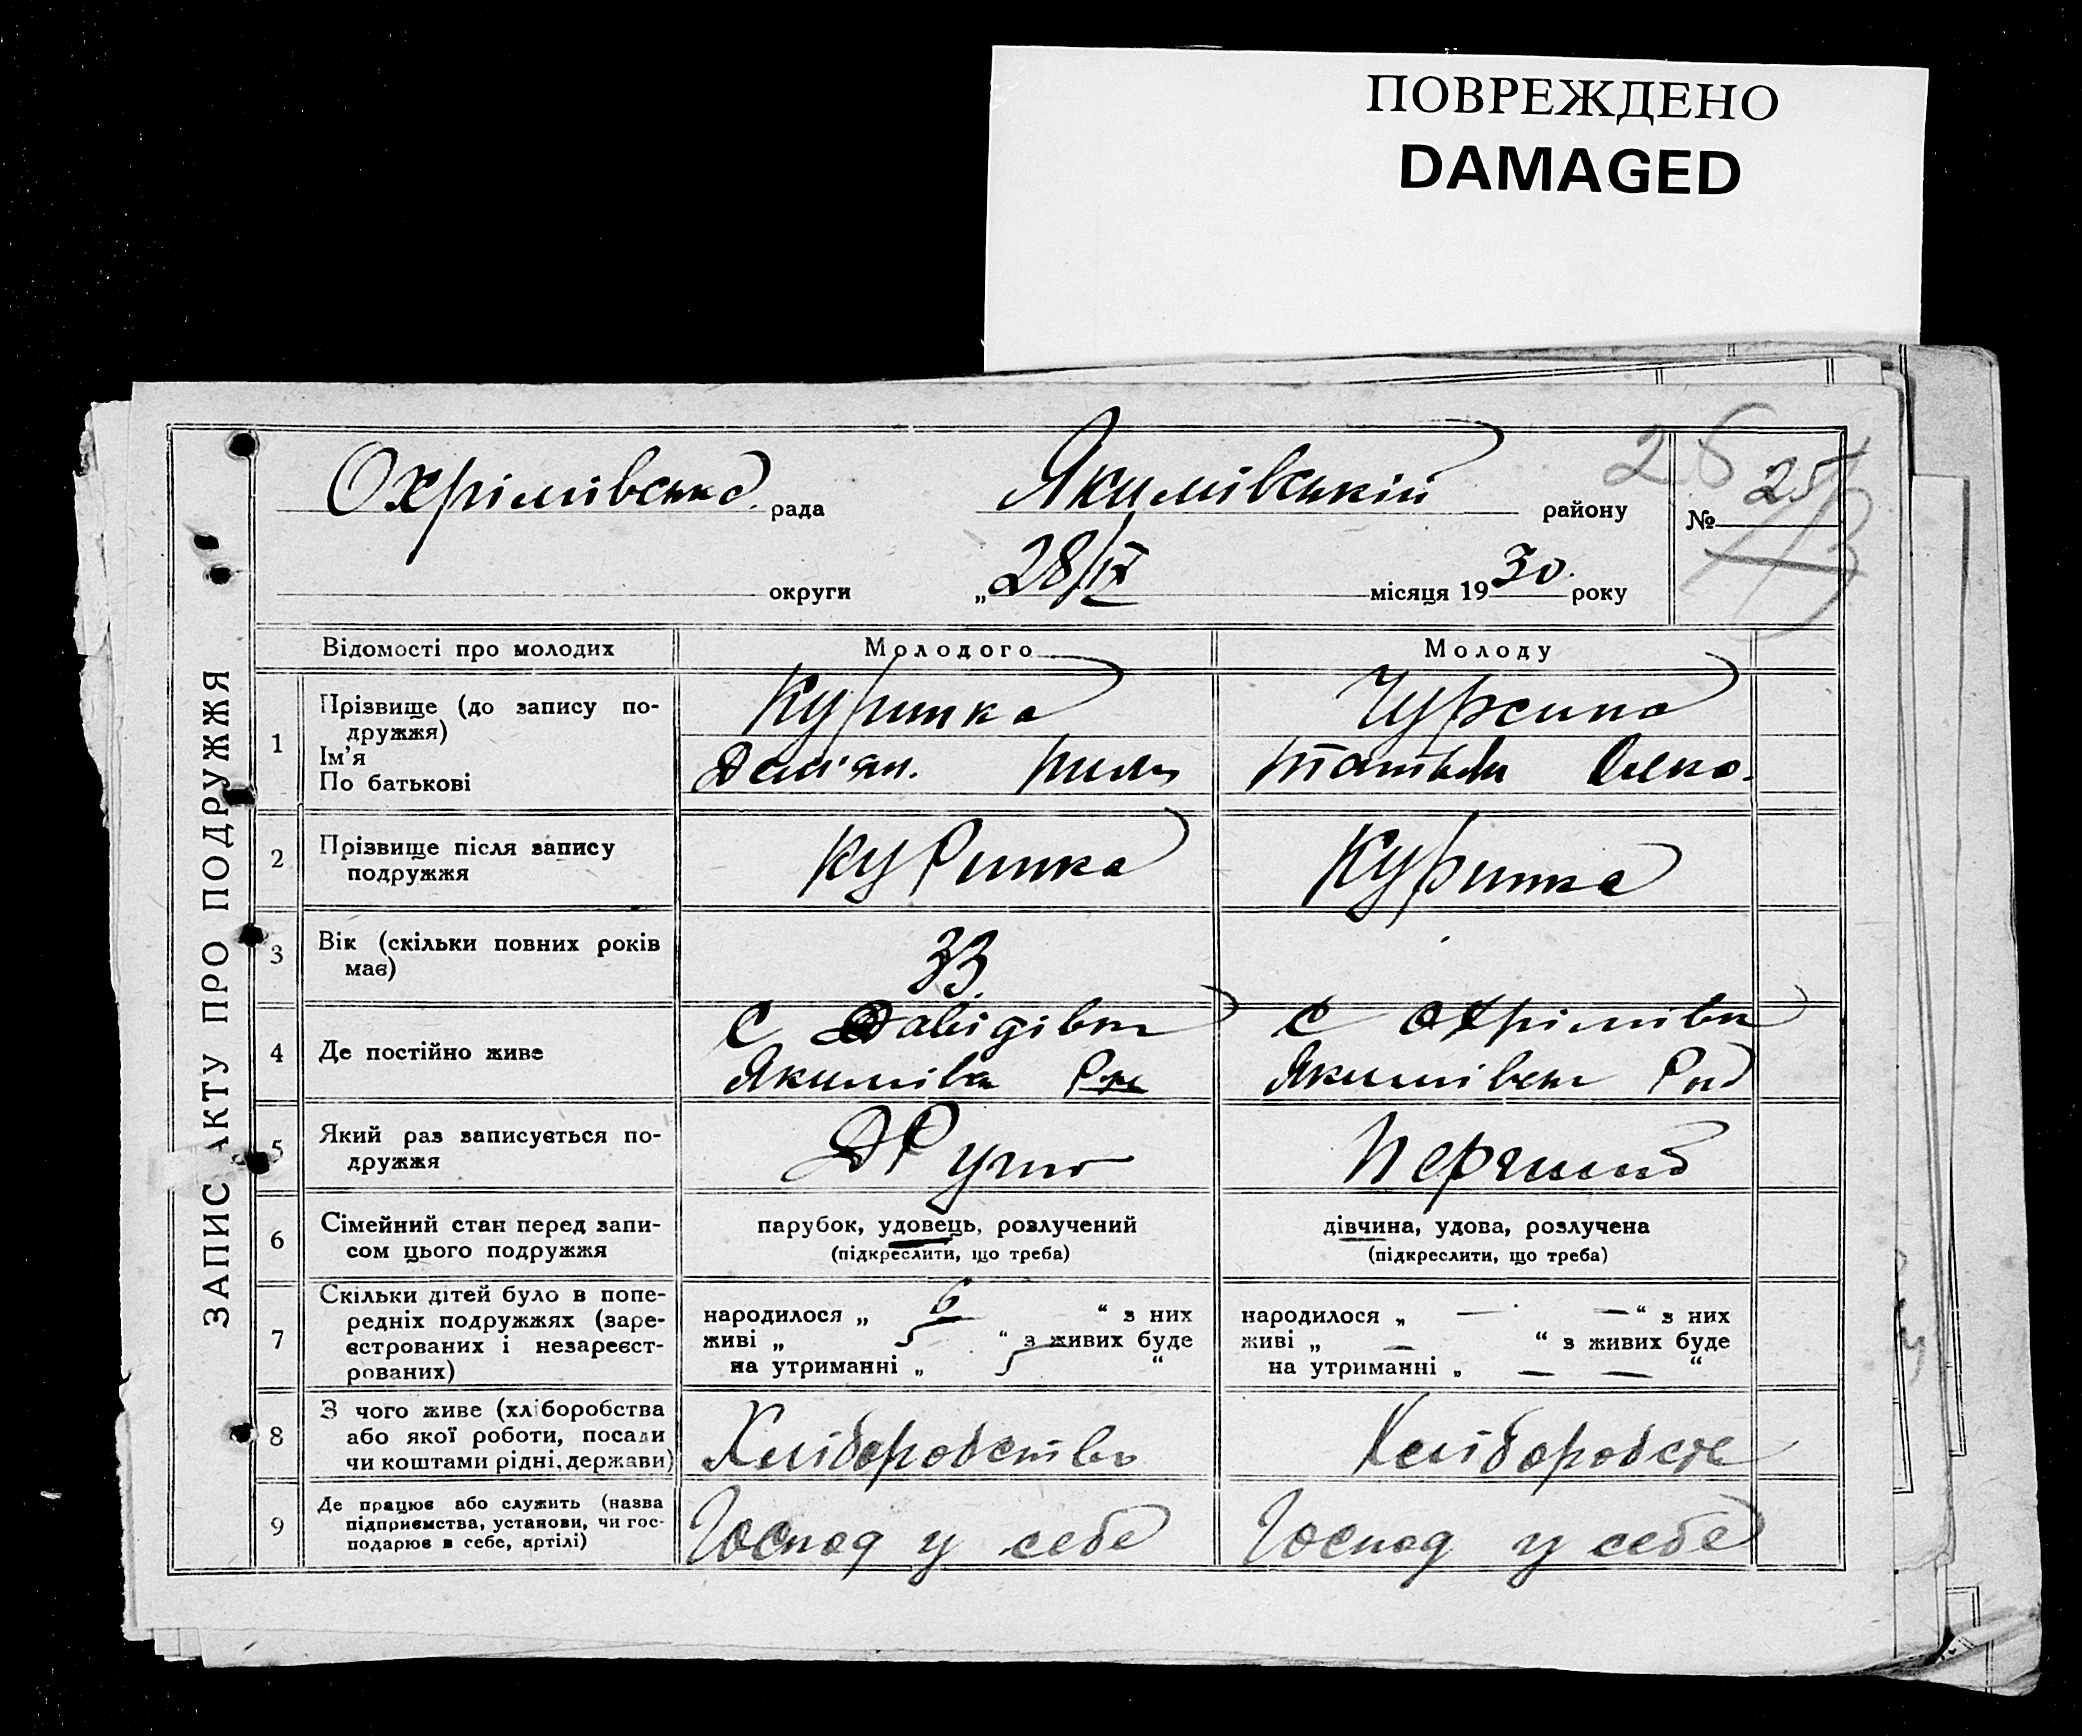 ПОВРЕЖДЕНО
DAMAGED
ЗАПИС АКТУ ПРО ПОДРУЖЖЯ
Охрімівська рада Якимівський району № 25
округи „28/IX місяця 1930 року
Відомості про молодих Молодого Молоду
1 Прізвище (до запису по-
дружжя)
Ім'я
По батькові
Куринка
Демян.
Татьян Олек.
2 Прізвище після запису
подружжя
Куринка Куринка
3 Вік (скільки повних років
має)
33
4 Де постійно живе
С Давідівки С Охрімівки
Якимівск Рад
5 Який раз записується по-
дружжя
Другий Перший
6 Сімейний стан перед запи-
сом цього подружжя
парубок, удовець, розлучений дівчина, удова, розлучена
(підкреслити, що треба) (підкреслити, що треба)
7 Скільки дітей було в попе-
редніх подружжях (заре-
єстрованих і незареєст-
рованих)
народилося „ 6 “ з них
живі „ 5 “ з живих буде
на утриманні „ 5 “
народилося „ — — “ з них
живі „ — “ з живих буде
на утриманні „ — — “
8 З чого живе (хліборобства
або якої роботи, посади
чи коштами рідні, держави)
Хліборобство Хлібороб
9 Де працює або служить (назва
підприємства, установи, чи гос-
подарює в себе, артілі)
Господ у себе Господ у себе